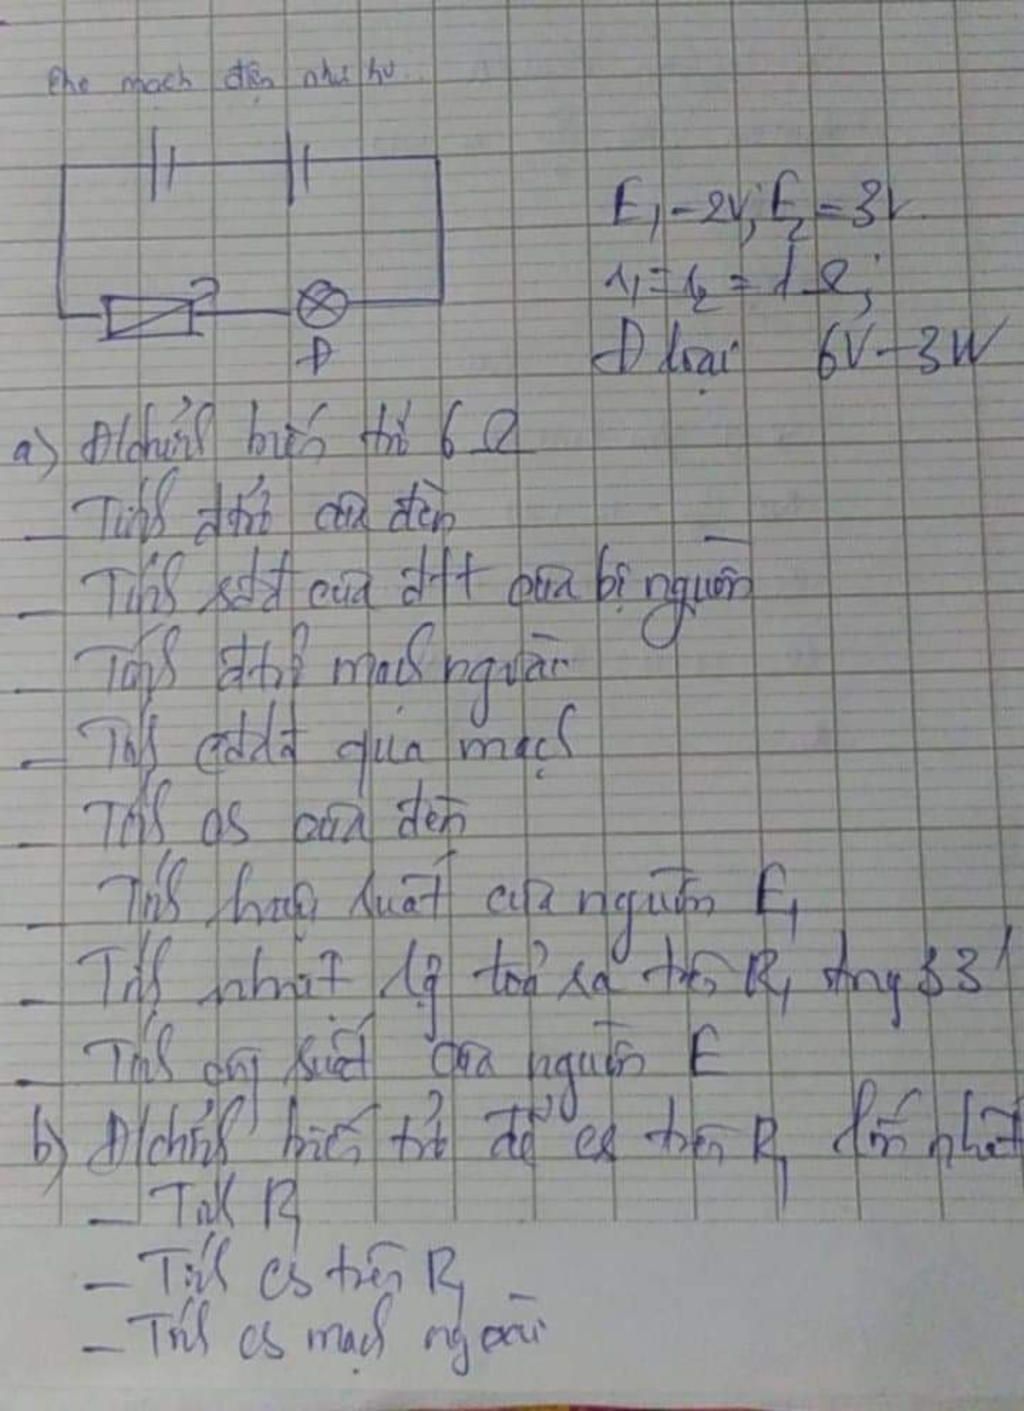 Cho mạch điện như hv
E₁ = 2V; E₂ = 3V
r₁ = r₂ = 1 Ω;
Đ loại 6V - 3W
Đ
a) Đ/chỉnh biến trở 6 Ω
- Tính đtrở của đèn
- Tính sđđ của đtt của bộ nguồn
- Tính đtrở mạch ngoài
- Tính cđdđ qua mạch
- Tính cs của đèn
- Tính hiệu suất của nguồn E₁
- Tính nhiệt lg toả ra trên R₁ trong 33'
- Tính công suất của nguồn E
b) Đ/chỉnh biến trở để cs trên R₁ lớn nhất
- Tính R₁
- Tính cs trên R₁
- Tính cs mạch ngoài